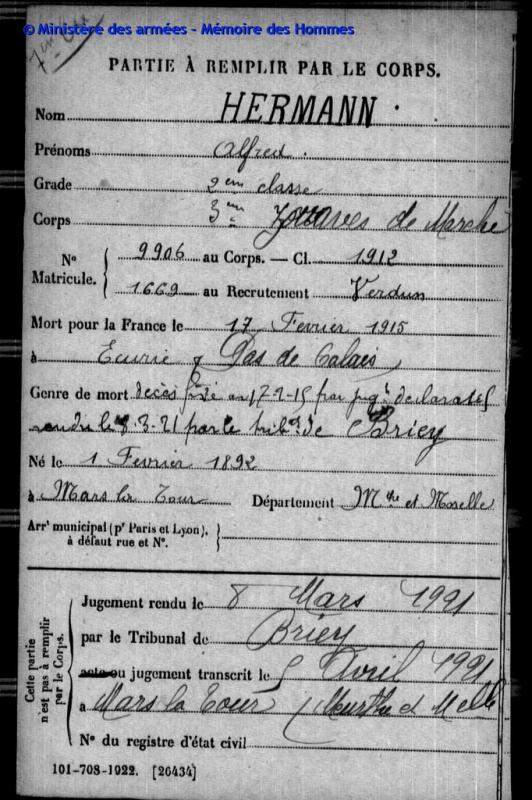 © Ministère des armées - Mémoire des Hommes
PARTIE À REMPLIR PAR LE CORPS.
Nom HERMANN.
Prénoms Alfred.
Grade 2ème classe
Corps 3ème Zouaves de Marche
Nº Matricule. 9906 au Corps. — Cl. 1912
1669 au Recrutement Verdun
Mort pour la France le 17 Fevrier 1915
à Ecurie Pas de Calais
Genre de mort décès fixé au 17-2-15 par jugt déclaratif
rendu le 8-3-21 par le tribal de Briey
Né le 1 Fevrier 1892
à Mars la Tour Département Mthe et Moselle
Arrt municipal (pr Paris et Lyon),
à défaut rue et Nº.
Cette partie n'est pas à remplir par le Corps.
Jugement rendu le 8 Mars 1921
par le Tribunal de Briey
acte ou jugement transcrit le 5 Avril 1921
à Mars la Tour Meurthe et Melle
Nº du registre d'état civil
101-708-1922. [26434]